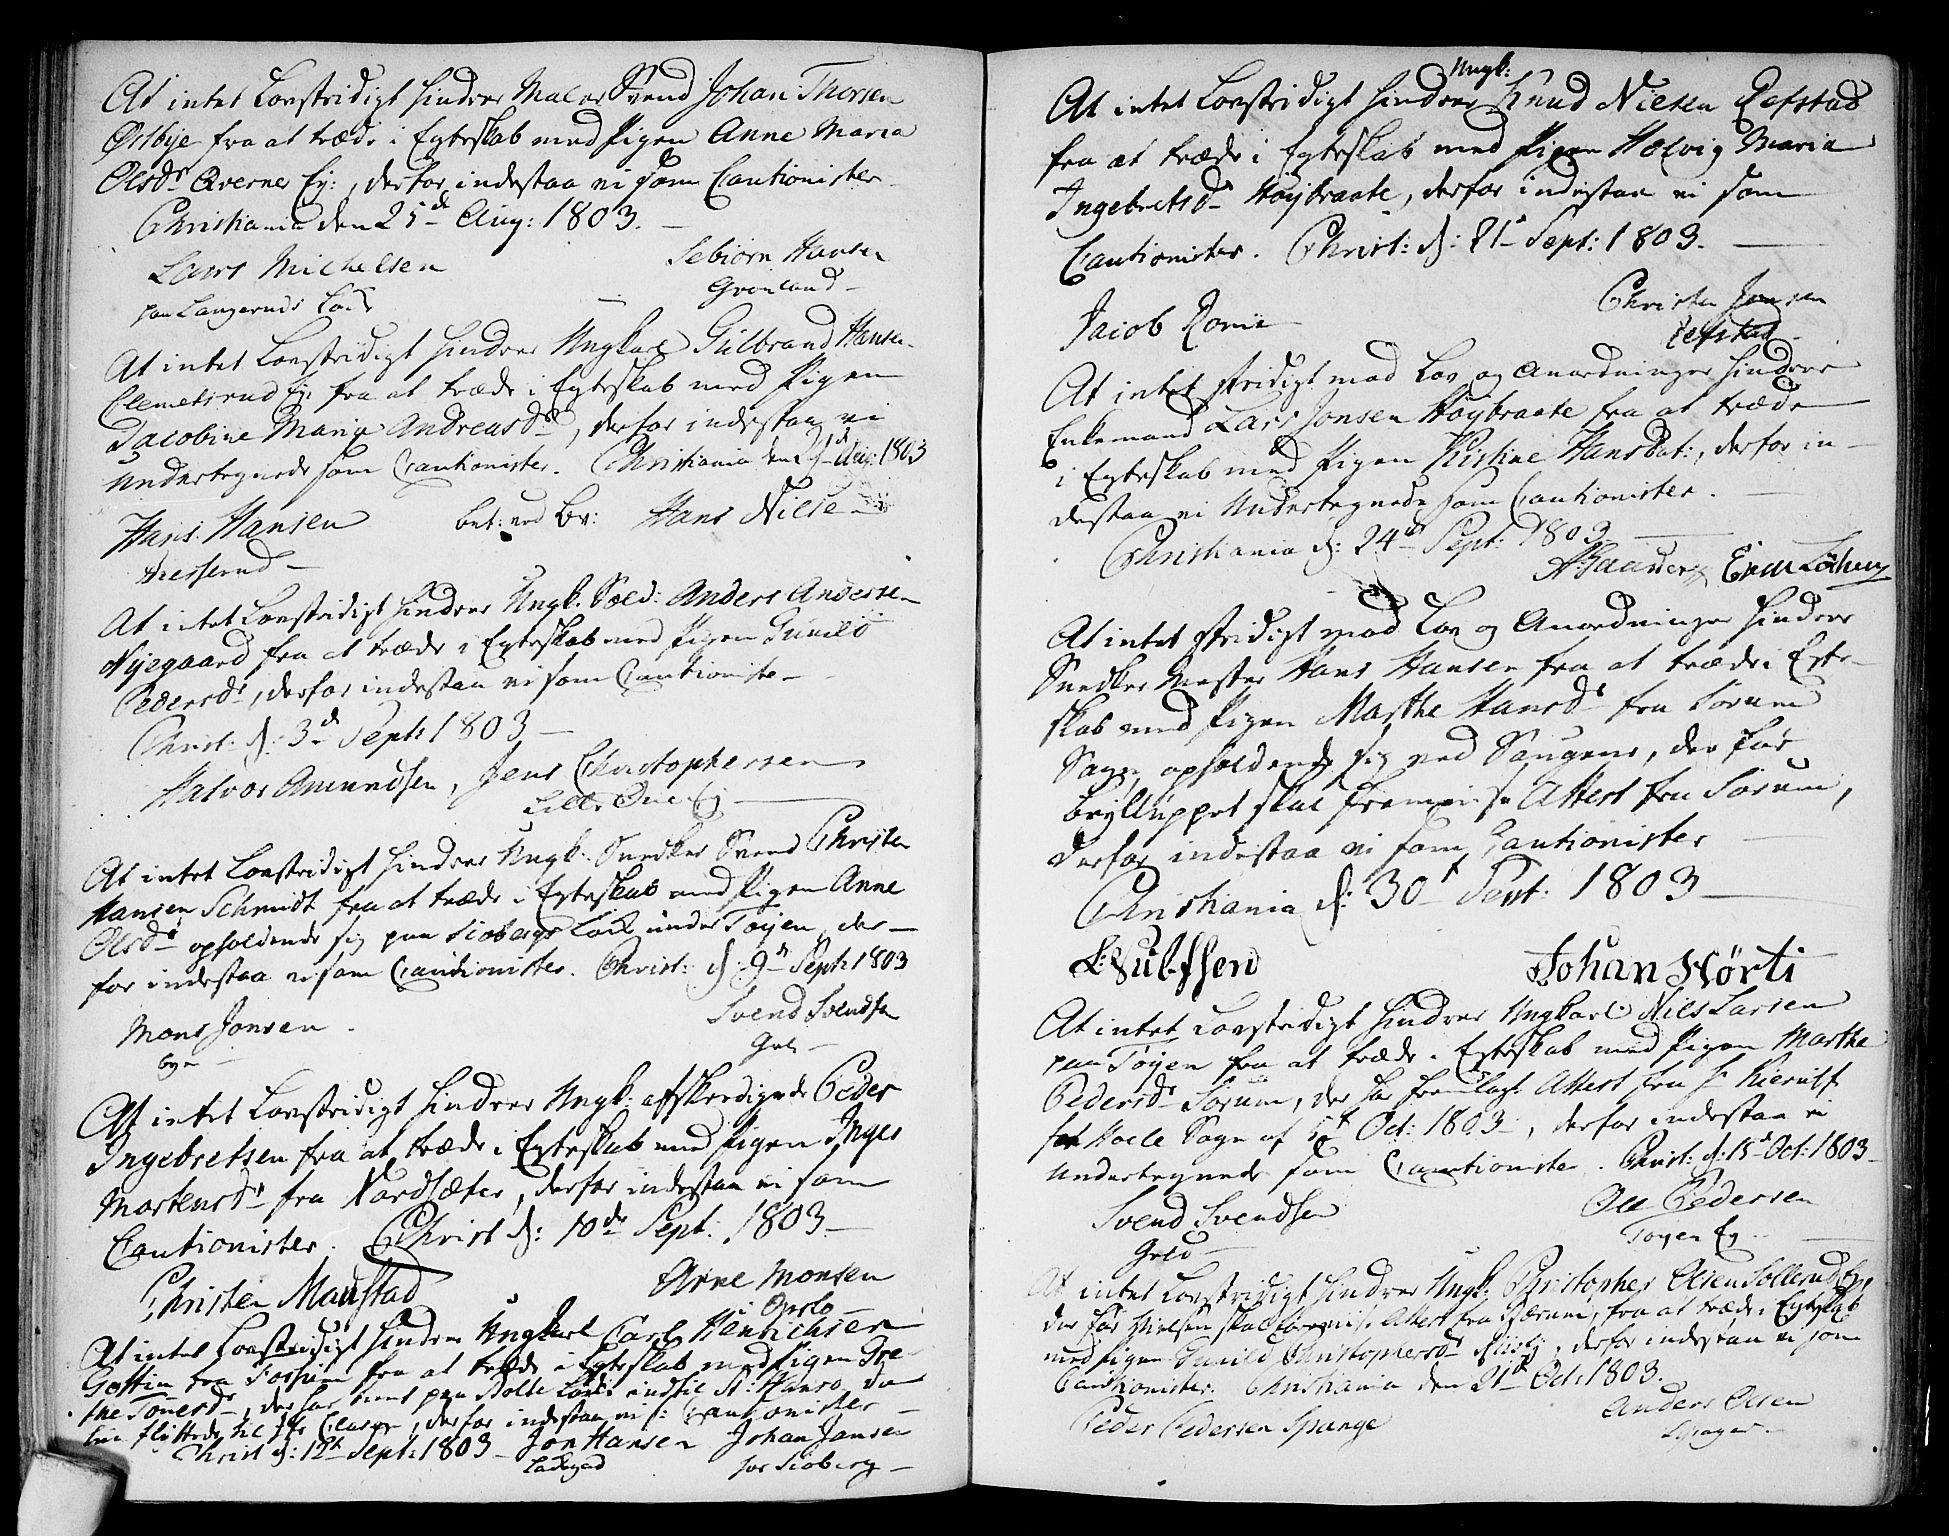 At intet Lovstridigt hindrer Maler Svend Johan Thorsen
Østbye fra at træde i Egteskab med Pigen Anne Maria
Olsdr Qverner Ej:, derfor indestaa vi som Cautionister
Christiania den 25de Aug: 1803.
Lars Michelsen Sebiørn Hansen
paa Langeruds Løcke Grønland
At intet Lovstridigt hindrer Ungkarl Gulbrand Hansen
Clemetsrud Ej: fra at træde i Egteskab med Pigen
Jacobine Maria Andreasdr, derfor indestaa vi
Undertegnede som Cautionister. Christiania den Aug: 1803
Hans Hansen bet: ved Bv: Hans Nilsen
At intet Lovstridigt hindrer Ungk. Sold: Anders Andersen
Nyegaard fra at træde i Egteskab med Pigen Gunild
Pedersdr, derfor indestaa vi som Cautionister
Christ: d: 3de Sept: 1803
Halvor Amundsen, Jens Christophersen
Lille Ej
At intet Lovstridigt hindrer Ungk. Snedker Svend Christen
Hansen Schmidt fra at træde i Egteskab med Pigen Anne
Olsdr opholdende sig paa Siobergs Løcke under Tøyen, der-
for indestaa vi som Cautionister. Christ: d: 9de Sept: 1803
Mons Jonsen Svend Svendsen
At intet Lovstridigt hindrer Ungk: afskedigede Peder
Ingebretsen fra at træde i Egteskab med Pigen Inger
Mortensdr fra Nordsæter, derfor indestaa vi som
Cautionister. Christ d: 10de Sept: 1803
Christen Manstad Arne Monsen
Opslo
At intet Lovstridigt hindrer Ungkarl Carl Henrichsen
fra Fossum fra at træde i Egteskab med Pigen Gre-
the, der har tient paa Løcke indtil St: Hans, da
hun flyttede til, derfor indestaa vi Cautionister
Christ d: 12te Sept: 1803 Jon Hansen Johan Jansen
Ladegad for Sioberg
Ungk:
At intet Lovstridigt hindrer Knud Nielsen Refstad
fra at træde i Egteskab med Pigen Helvig Maria
Ingebretsdr Høybraate, derfor indestaa vi som
Cautionister. Christ: d: 21de Sept: 1803.
Jacob Christen Jansen
Refstad
At intet stridigt mod Lov og Anordninger hindrer
Enkemand Lars Jonsen Høybraate fra at træde
i Egteskab med Pigen Kistine Hansdat:, derfor in-
destaa vi Undertegnede som Cautionister.
Christiania d: 24de Sept: 1803
At intet stridigt mod Lov og Anordninger hindrer
Snedker Mester Hans Hansen fra at træde i Egte-
skab med Pigen Marthe Hansdr fra Sørum
Sogn, opholdende sig ved Saugene, der før
Brylluppet skal fremvise Attest fra Sørum,
derfor indestaa vi som Cautionister
Christiania d: 30te Sept: 1803
L: Wulfsen Johan Hørti
At intet Lovstridigt hindrer Ungkarl Niels Larsen
paa Tøyen fra at træde i Egteskab med Pigen Marthe
Pedersdr Sørum, der har fremlagt Attest fra Hr Kierulf
for Hoele Sogn af 5te Oct: 1803, derfor indestaa vi
Undertegnede som Cautionister. Christ: d: 15de Oct: 1803
Svend Svendsen Ole Pedersen
Tøyen Ej.
At intet Lovstridigt hindrer Ungk: Christopher Olsen Sollerud Ej,
der før Vielsen skal forevise Attest fra Bærum, fra at træde i Egteskab
med Pigen Gunild Christophersdr, derfor indestaa vi som
Cautionister. Christiania den 21de Oct: 1803.
Peder Pedersen Spange Anders Olsen